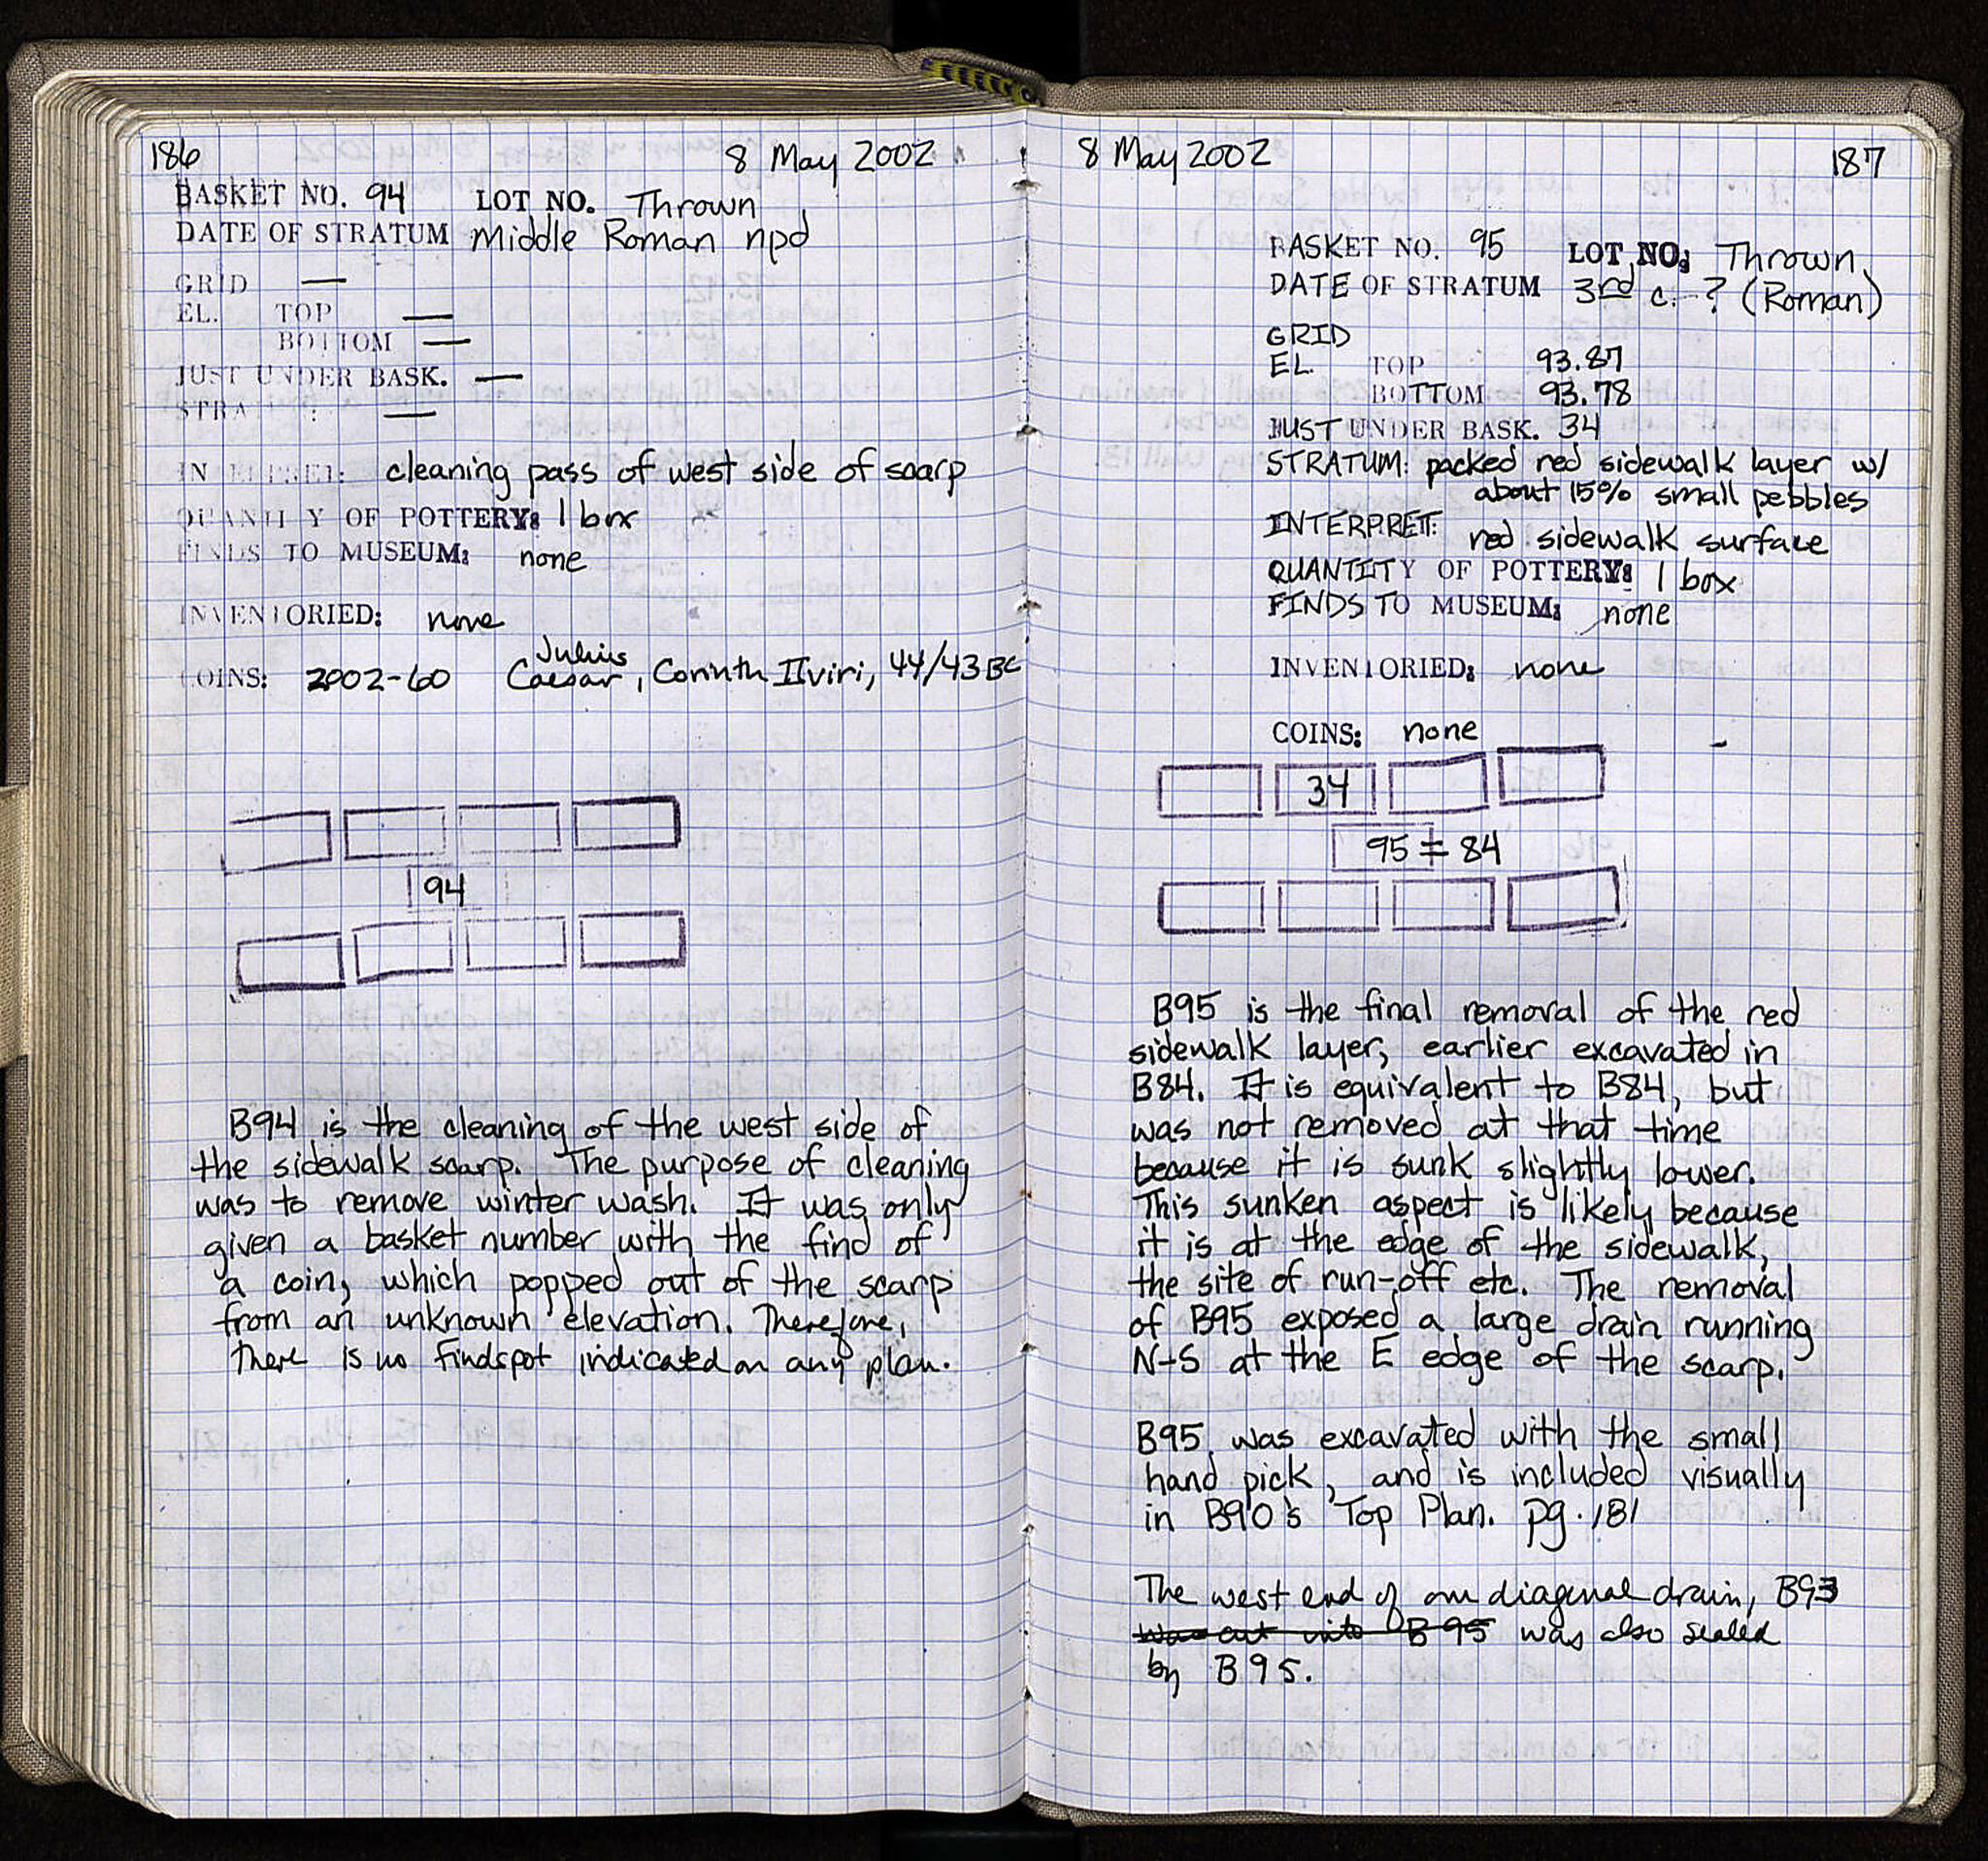 186
8 May 2002
BASKET NO. 94 LOT NO. Thrown
DATE OF STRATUM Middle Roman npd
GRID —
EL. TOP —
BOTTOM —
JUST UNDER BASK. —
STRA —
INTERPRET: cleaning pass of west side of scarp
QUANTITY OF POTTERY: 1 box
FINDS TO MUSEUM: none
INVENTORIED: none
Julius
COINS: 2002-60 Caesar, Corinth IIviri, 44/43 BC
94
B94 is the cleaning of the west side of
the sidewalk scarp. The purpose of cleaning
was to remove winter wash. It was only
given a basket number with the find of
a coin, which popped out of the scarp
from an unknown elevation. Therefore,
there is no findspot indicated on any plan.
8 May 2002
187
BASKET NO. 95 LOT NO: Thrown
DATE OF STRATUM 3rd c.-? (Roman)
GRID
EL. TOP 93.87
BOTTOM 93.78
JUST UNDER BASK. 34
STRATUM: packed red sidewalk layer w/
about 15% small pebbles
INTERPRET: red sidewalk surface
QUANTITY OF POTTERY: 1 box
FINDS TO MUSEUM: none
INVENTORIED: none
COINS: none
34
95 = 84
B95 is the final removal of the red
sidewalk layer, earlier excavated in
B84. It is equivalent to B84, but
was not removed at that time
because it is sunk slightly lower.
This sunken aspect is likely because
it is at the edge of the sidewalk,
the site of run-off etc. The removal
of B95 exposed a large drain running
N-S at the E edge of the scarp.
B95 was excavated with the small
hand pick, and is included visually
in B90's Top Plan. pg. 181
The west end of our diagonal drain, B93
was cut into B95 was also sealed
by B95.